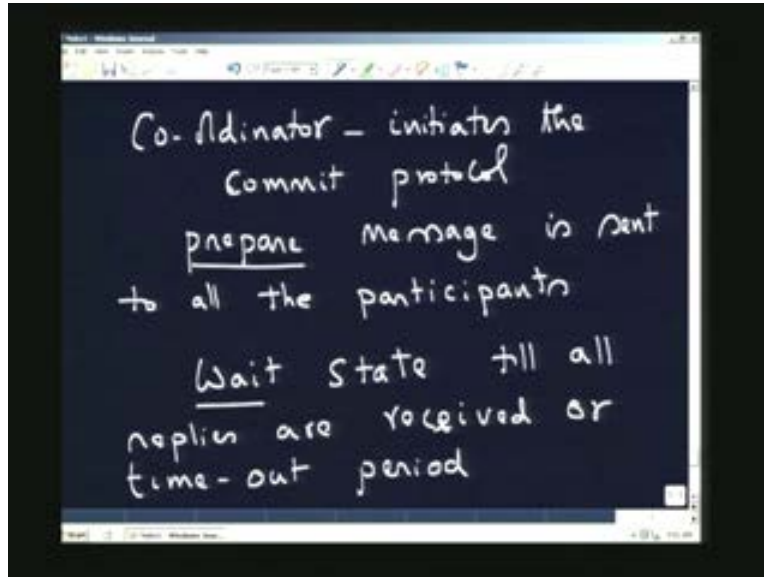 Co-ordinator - initiates the
commit protocol
prepare message is sent
to all the participants
Wait state till all
replies are received or
time-out period